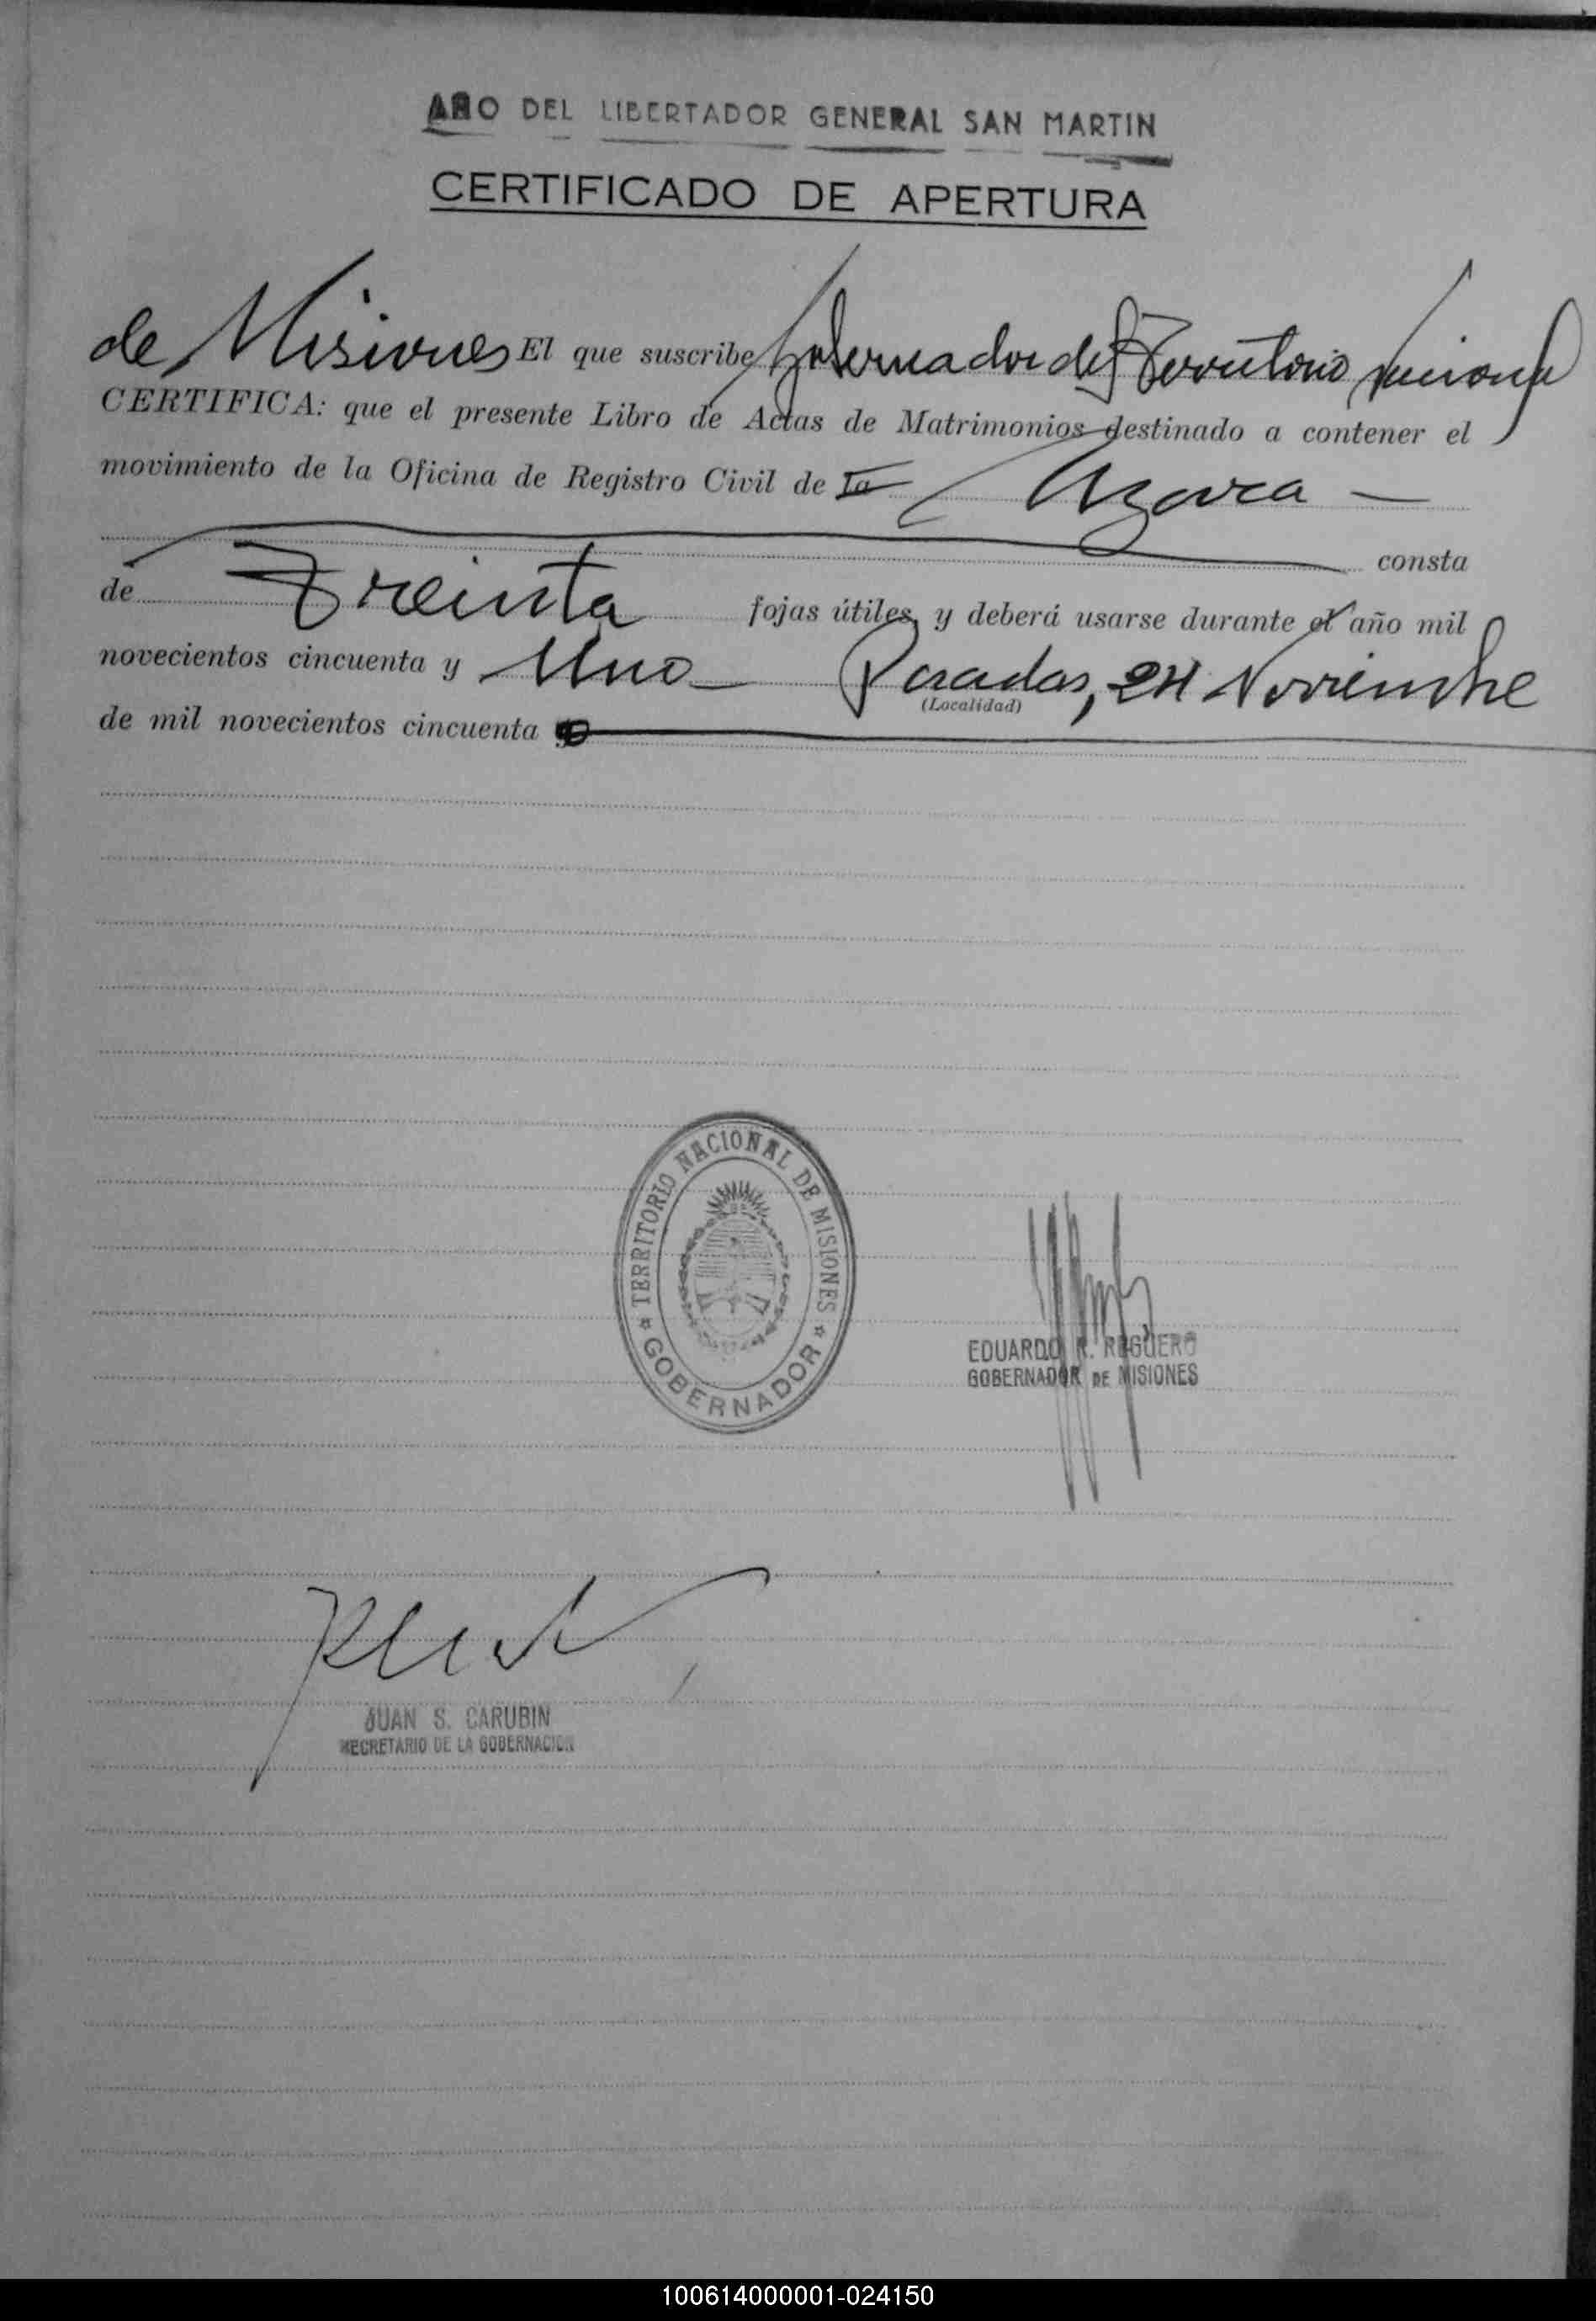 AÑO DEL LIBERTADOR GENERAL SAN MARTIN
CERTIFICADO DE APERTURA
de Misiones El que suscribe Gobernador del Territorio Nacional
CERTIFICA: que el presente Libro de Actas de Matrimonios destinado a contener el
movimiento de la Oficina de Registro Civil de la Azara
consta
de Treinta fojas útiles, y deberá usarse durante el año mil
novecientos cincuenta y Uno Posadas, 24 Noviembre
(Localidad)
de mil novecientos cincuenta
TERRITORIO NACIONAL DE MISIONES
GOBERNADOR
EDUARDO R. REGUERO
GOBERNADOR DE MISIONES
JUAN S. CARUBIN
SECRETARIO DE LA GOBERNACION
100614000001-024150